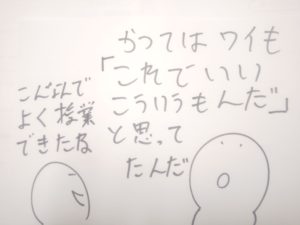 かつては ワイも
「これでいい
こういうもんだ」
と思って
たんだ
こんなんで
よく授業
できたな